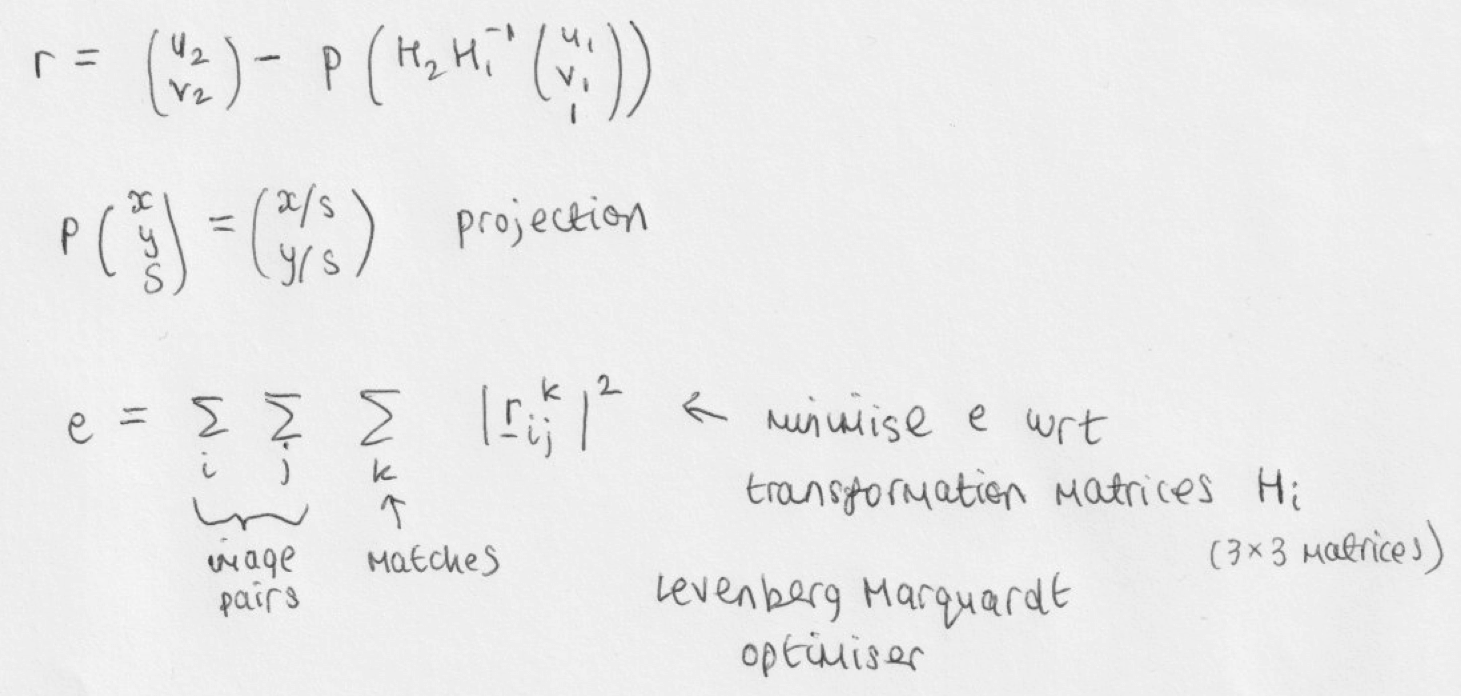 r = (u₂ v₂) - P (H₂ H₁⁻¹ (u₁ v₁ 1))
P (x y S) = (x/s y/s) projection
e = Σ_i Σ_j Σ_k |r_ij^k|² ← minimise e wrt
transformation matrices H_i
(3×3 matrices)
image pairs
↑ matches
Levenberg Marquardt
optimiser